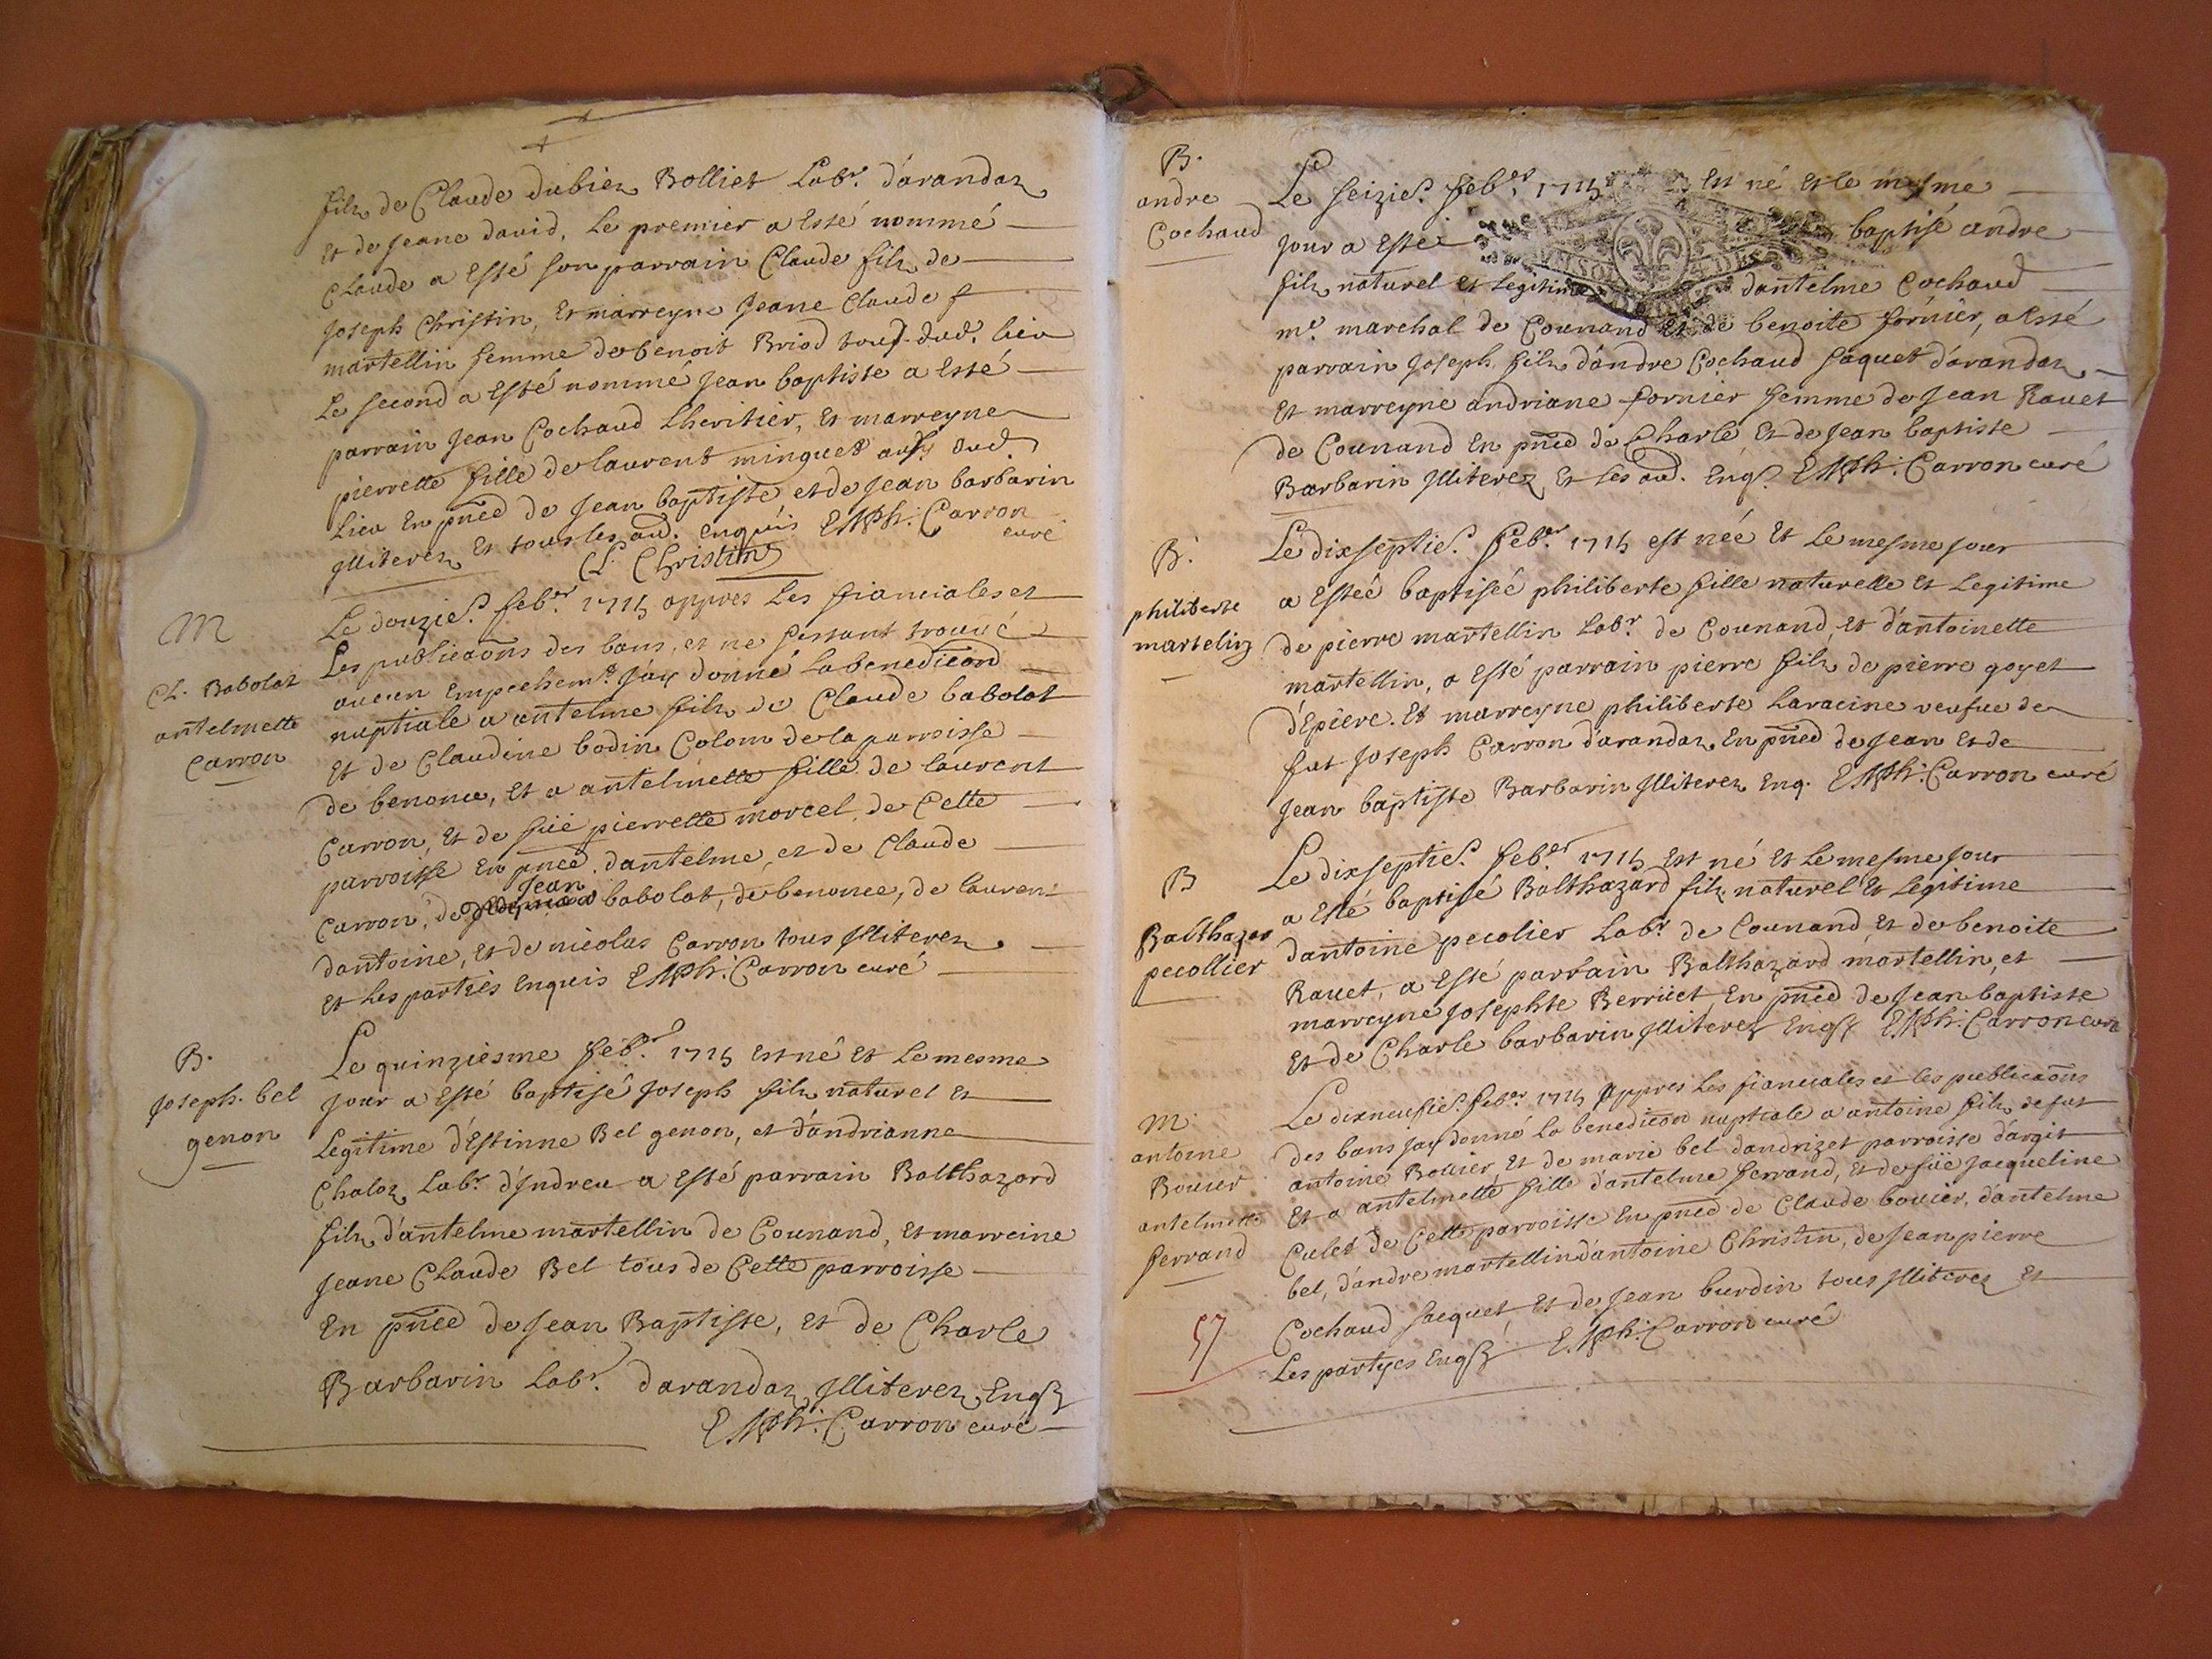 filz de Claude dubiez Bolliet Labr. d'arandaz
et de jeane david, Le premier a Esté nommé
Claude a Esté son parrain Claude filz de
joseph Christin, et marreyne jeane Claude f
martellin femme de benoit Briod tous dud. lieu
Le second a Esté nommé jean baptiste a Esté
parrain jean Cochaud Lheritier, et marreyne
pierrette fille de laurent minguet aussy dud.
Lieu En pñce de jean baptiste et de jean barbarin
jlliterez Et tous les aud. enquis E M Ph: Carron
curé
Cl. Christin
M
Cl. Babolat
antelmette
Carron
Le douzie. feber. 1715 appres Les fianciales et
Les publicaõns des bans, et ne sestant trouué
aucun Empechemt. j'ay donné La benediction
nuptiale a antelme filz de Claude babolat
et de Claudine bodin Colom de la parroisse
de benonce, et a antelmette fille de laurent
Carron, Et de füe pierrette morcel, de Cette
parroisse En pñce. dantelme, et de Claude
jean
Carron, de babolat, de benonce, de laurent
dantoine, Et de nicolas Carron tous jlliterez
et Les partiés Enquis E M Ph: Carron curé
B.
joseph. bel
genon
Le quinziesme feber. 1715 est né et Le mesme
jour a Esté baptisé joseph filz naturel et
Legitime d'Estinne Bel genon, et d'andrianne
Chaloz Labr. d'jndreu a Esté parrain Balthazard
filz d'antelme martellin de Counand, et marreine
jeane Claude Bel tous de Cette parroisse
En pñce de jean Baptiste, et de Charle
Barbarin Labr. darandaz jlliterez Enqs
E M Ph: Carron curé
B.
andre
Cochaud
Le seizie. feber. 1715 Est né et le mesme
jour a Esté baptisé andre
filz naturel et Legitime dantelme Cochaud
me. marchal de Counand et de benoite fornier, a Esté
parrain joseph filz d'andre Cochaud jaquet d'arandaz
et marreyne andriane fornier femme de jean Rauet
de Counand En pñce de Charle Et de jean baptiste
Barbarin jlliterez Et les aud. Enqs E M Ph: Carron curé
B.
philiberte
martelin
Le dixseptie. feber. 1715 est née Et Le mesme jour
a Esteé baptiseé philiberte fille naturelle et Legitime
de pierre martellin Labr. de Counand, et d'antoinette
martellin, a Esté parrain pierre filz de pierre goyet
d'Epiere. Et marreyne philiberte Laracine veufue de
fut joseph Carron d'arandaz, En pñce de jean et de
jean baptiste Barbarin jlliterez Enq. E M Ph: Carron curé
B
Balthazar
pecollier
Le dixseptie. feber. 1715 Est né et Le mesme jour
a Esté baptisé Balthazard filz naturel et Legitime
dantoine pecolier Labr. de Counand et de benoite
Rauet, a Esté parrain Balthazard martellin, et
marreyne josephte Berruet, En pñce de jean baptiste
et de Charle barbarin jlliterez Enqs E M Ph: Carron curé
M
antoine
Bouier
antelmette
ferrand
Le dixneufie. feber. 1715 appres Les fianciales et les publicaõns
des bans jay donné La benedicõn nuptiale a antoine filz de fut
antoine Bouier, Et de marie bel dandrizet parroisse d'argit
Et a antelmette fille d'antelme ferrand, et de füe jacqueline
Culet de Cette parroisse En pñce de Claude bouier, d'antelme
bel, d'andre martellin d'antoine Christin, de jean pierre
Cochaud jacquet, Et de jean burdin tous jlliterez Et
Les partyes Enqs E. M Ph: Carron curé
57